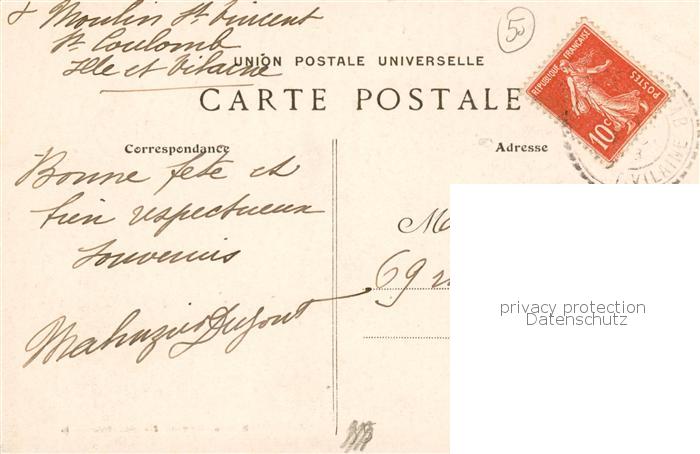 Moulin St Vincent
St Coulomb
Ille et Vilaine
5
UNION POSTALE UNIVERSELLE
CARTE POSTALE
REPUBLIQUE FRANÇAISE
POSTES
10c
VILAINE
Correspondance
Adresse
Bonne fête et
bien respectueux
souvenirs
Dufour
69
privacy protection
Datenschutz